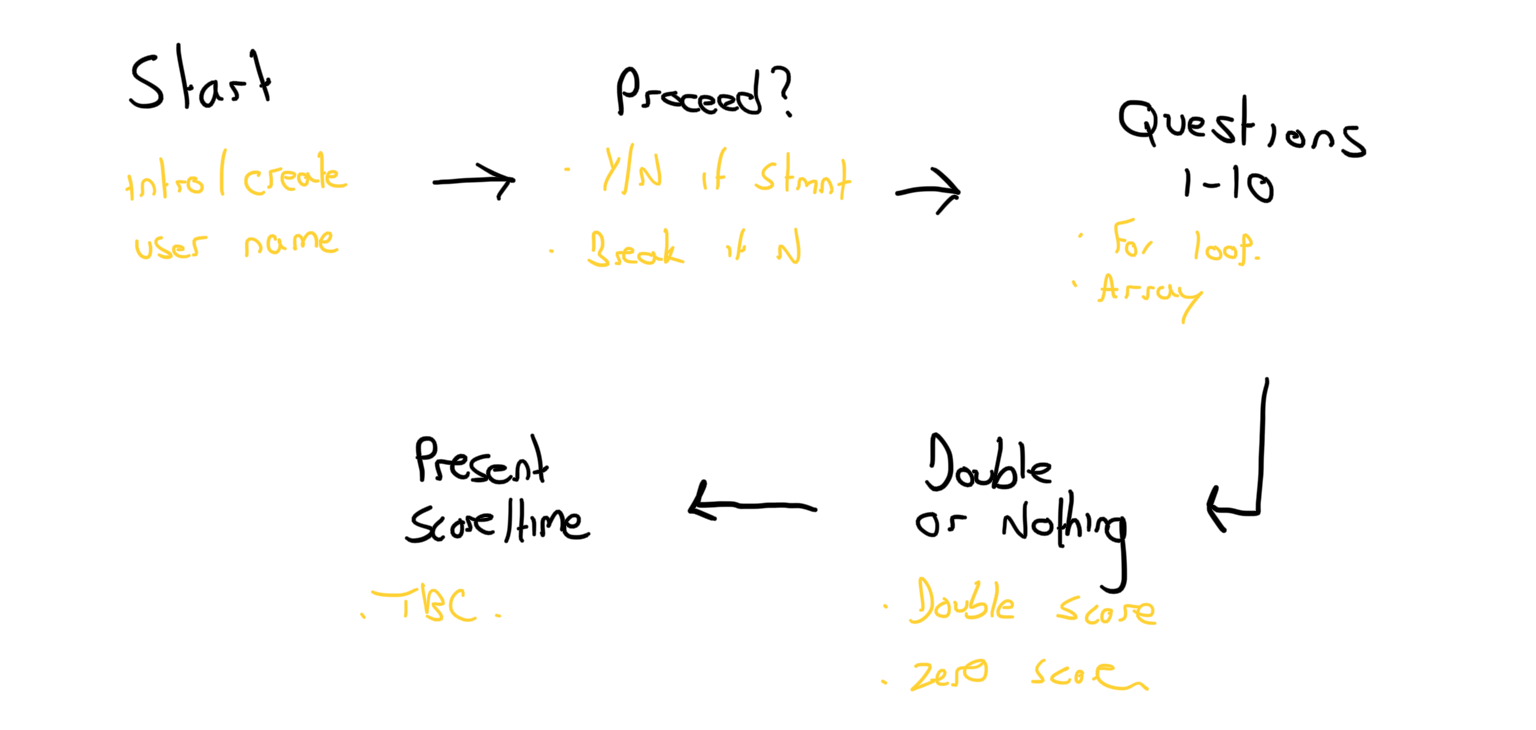 Start
Intro/create
user name
Proceed?
· Y/N if stmnt
· Break if N
Questions
1-10
· For loop.
· Array
Double
or Nothing
· Double score
· Zero score
Present
Score/time
. TBC.